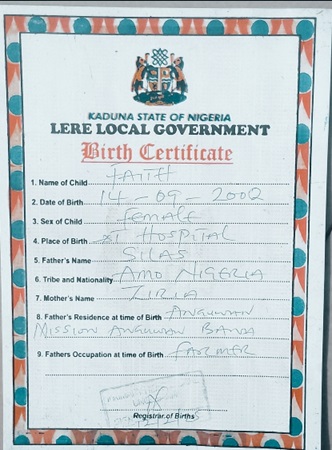 KADUNA STATE OF NIGERIA
LERE LOCAL GOVERNMENT
Birth Certificate
1. Name of Child FAITH
2. Date of Birth 14-09-2002
3. Sex of Child female
4. Place of Birth HOSPITAL
5. Father's Name SILAS
6. Tribe and Nationality AMO NIGERIA
7. Mother's Name
8. Father's Residence at time of Birth ANGUWAN
MISSION ANGUWAN BAWA
9. Fathers Occupation at time of Birth FARMER
Registrar of Births